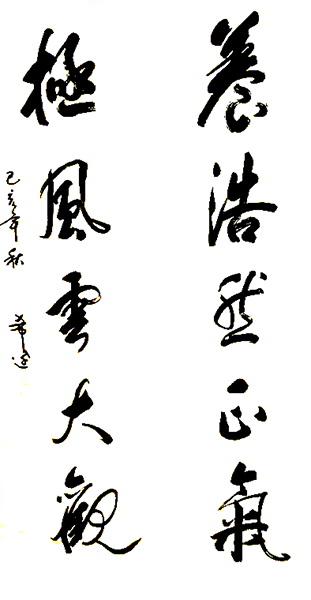 養浩然正氣
極風雲大觀
己亥年秋 希逆